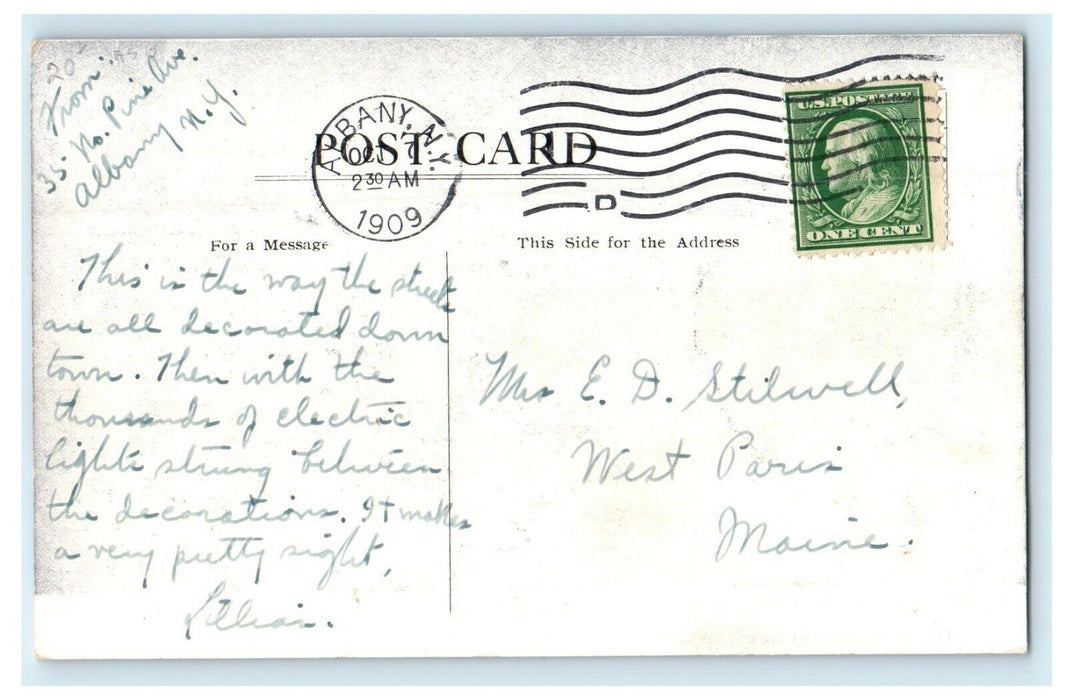 From:
35 No. Pine Ave.
Albany N.Y.
POST CARD
ALBANY, N.Y.
OCT 7
2 30 AM
1909
D
U.S. POSTAGE
ONE CENT
For a Message
This Side for the Address
This is the way the streets
are all decorated down
town. Then with the
thousands of electric
lights strung between
the decorations. It makes
a very pretty sight,
Lillian.
Mrs E. D. Stilwell,
West Paris
Maine.